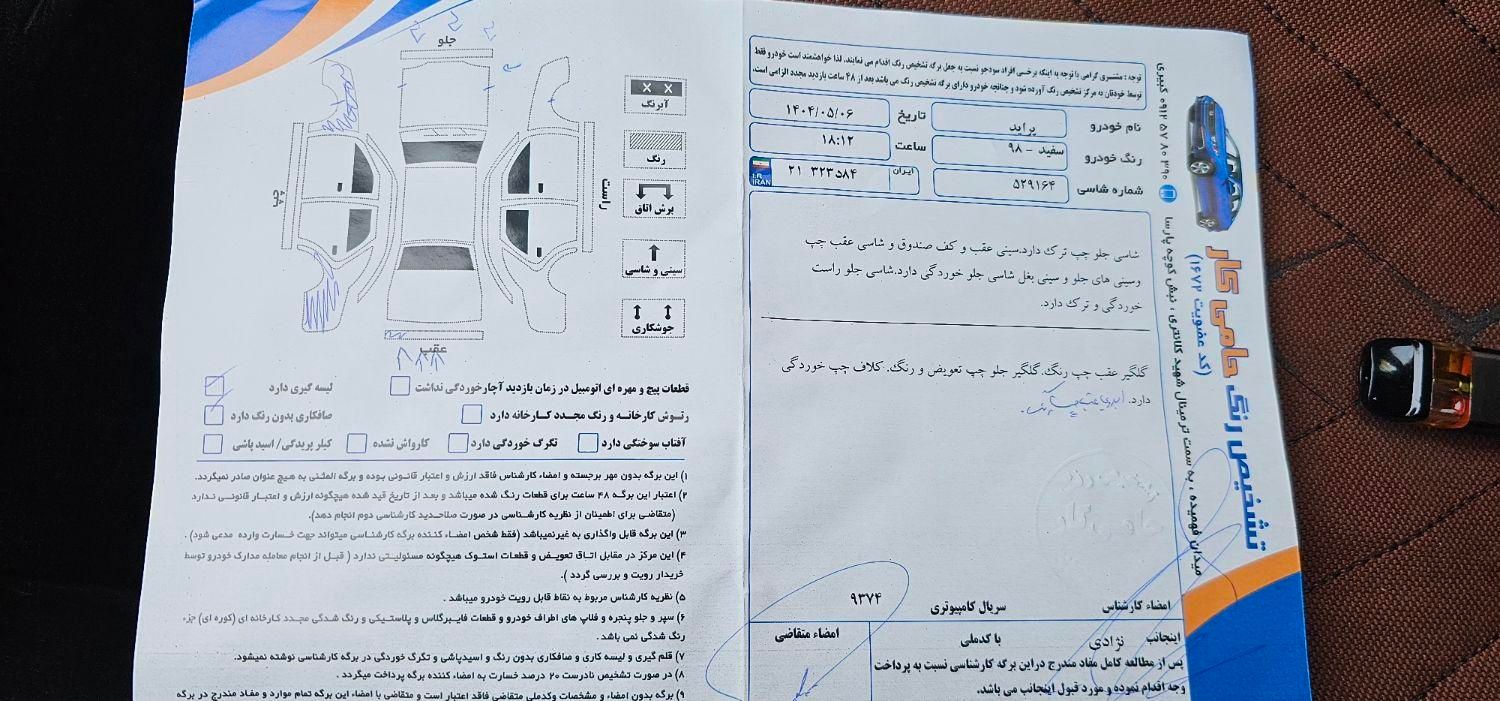 توجه : مشتری گرامی با توجه به اینکه برخی افراد سودجو نسبت به جعل برگه تشخیص رنگ اقدام می نمایند. لذا خواهشمند است خودرو فقط
توسط خودتان به مرکز تشخیص رنگ آورده شود و چنانچه خودرو دارای برگه تشخیص رنگ می باشد بعد از ۴۸ ساعت بازدید مجدد الزامی است.
نام خودرو پراید تاریخ ۱۴۰۴/۰۵/۰۶
رنگ خودرو سفید - ۹۸ ساعت ۱۸:۱۲
شماره شاسی ۵۲۹۱۶۴ ایران ۲۱ ۳۲۳۵۸۴
I.R
IRAN
شاسی جلو چپ ترک دارد.سینی عقب و کف صندوق و شاسی عقب چپ
وسینی های جلو و سینی بغل شاسی جلو خوردگی دارد.شاسی جلو راست
خوردگی و ترک دارد.
گلگیر عقب چپ رنگ.گلگیر جلو چپ تعویض و رنگ. کلاف چپ خوردگی
دارد.
امضاء کارشناس
سریال کامپیوتری ۹۳۷۴
اینجانب نژادی با کدملی
امضاء متقاضی
پس از مطالعه کامل مفاد مندرج در این برگه کارشناسی نسبت به پرداخت
وجه اقدام نموده و مورد قبول اینجانب می باشد.
تشخیص رنگ حامی کار
(کد عضویت ۱۶۷۲)
میدان فهمیده ، به سمت ترمینال شهید کلانتری ، نبش کوچه پارسا
۰۹۱۲ ۵۷ ۸۰ ۳۹۰ کبیری
جلو
راست
چپ
عقب
X X
آبرنگ
رنگ
برش اتاق
سینی و شاسی
جوشکاری
قطعات پیچ و مهره ای اتومبیل در زمان بازدید آچارخوردگی نداشت
لیسه گیری دارد
رتوش کارخانه و رنگ مجدد کارخانه دارد
صافکاری بدون رنگ دارد
آفتاب سوختگی دارد
تگرگ خوردگی دارد
کارواش نشده
کیلر پریدگی/ اسید پاشی
۱) این برگه بدون مهر برجسته و امضاء کارشناس فاقد ارزش و اعتبار قانونی بوده و برگه المثنی به هیچ عنوان صادر نمیگردد.
۲) اعتبار این برگه ۴۸ ساعت برای قطعات رنگ شده میباشد و بعد از تاریخ قید شده هیچگونه ارزش و اعتبار قانونی ندارد
(متقاضی برای اطمینان از نظریه کارشناسی در صورت صلاحدید کارشناسی دوم انجام دهد).
۳) این برگه قابل واگذاری به غیرنمیباشد (فقط شخص امضاء کننده برگه کارشناسی میتواند جهت خسارت وارده مدعی شود) .
۴) این مرکز در مقابل اتاق تعویض و قطعات استوک هیچگونه مسئولیتی ندارد ( قبل از انجام معامله مدارک خودرو توسط
خریدار رویت و بررسی گردد ).
۵) نظریه کارشناس مربوط به نقاط قابل رویت خودرو میباشد .
۶) سپر و جلو پنجره و فلاپ های اطراف خودرو و قطعات فایبرگلاس و پلاستیکی و رنگ شدگی مجدد کارخانه ای (کوره ای) جزء
رنگ شدگی نمی باشد .
۷) قلم گیری و لیسه کاری و صافکاری بدون رنگ و اسیدپاشی و تگرگ خوردگی در برگه کارشناسی نوشته نمیشود.
۸) در صورت تشخیص نادرست ۲۰ درصد خسارت به امضاء کننده برگه پرداخت میگردد .
۹) برگه بدون امضاء و مشخصات وکدملی متقاضی فاقد اعتبار است و متقاضی با امضاء این برگه تمام موارد و مفاد مندرج در برگه